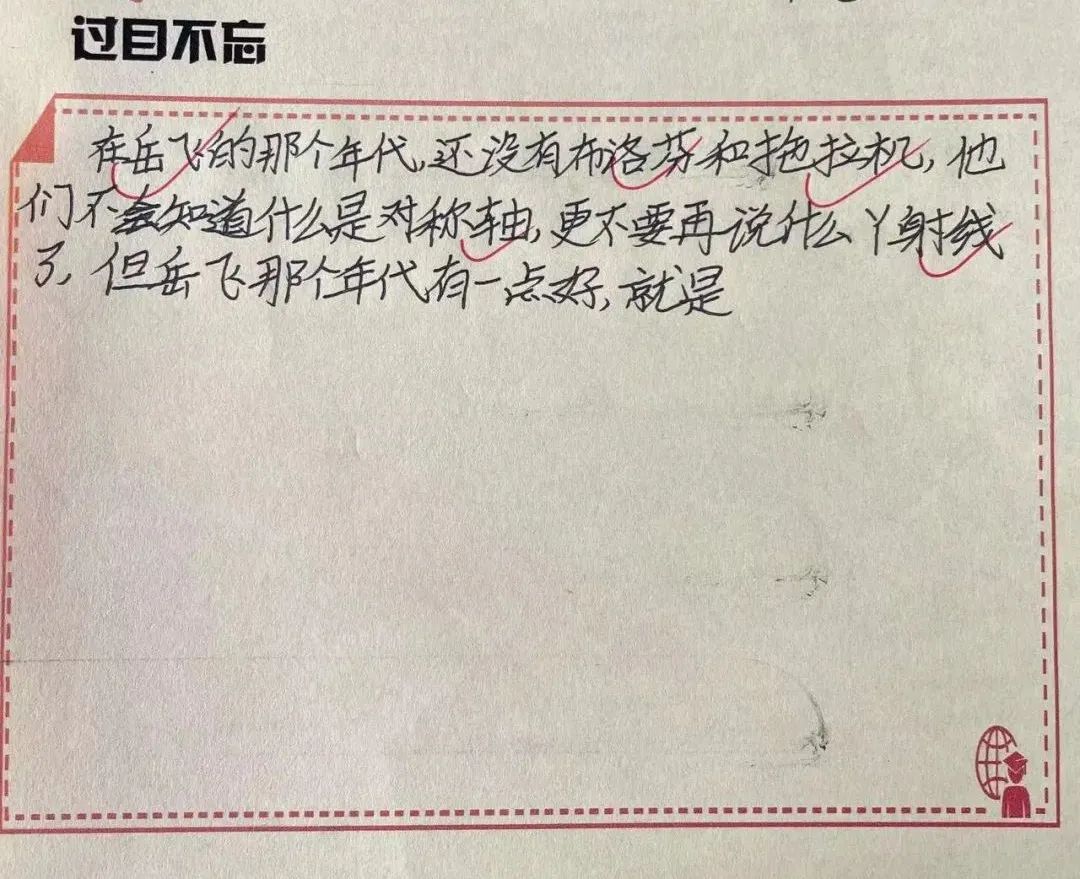 过目不忘
在岳飞的那个年代,还没有布洛芬和拖拉机,他
们不会知道什么是对称轴,更不要再说什么丫射线
了,但岳飞那个年代有一点好,就是